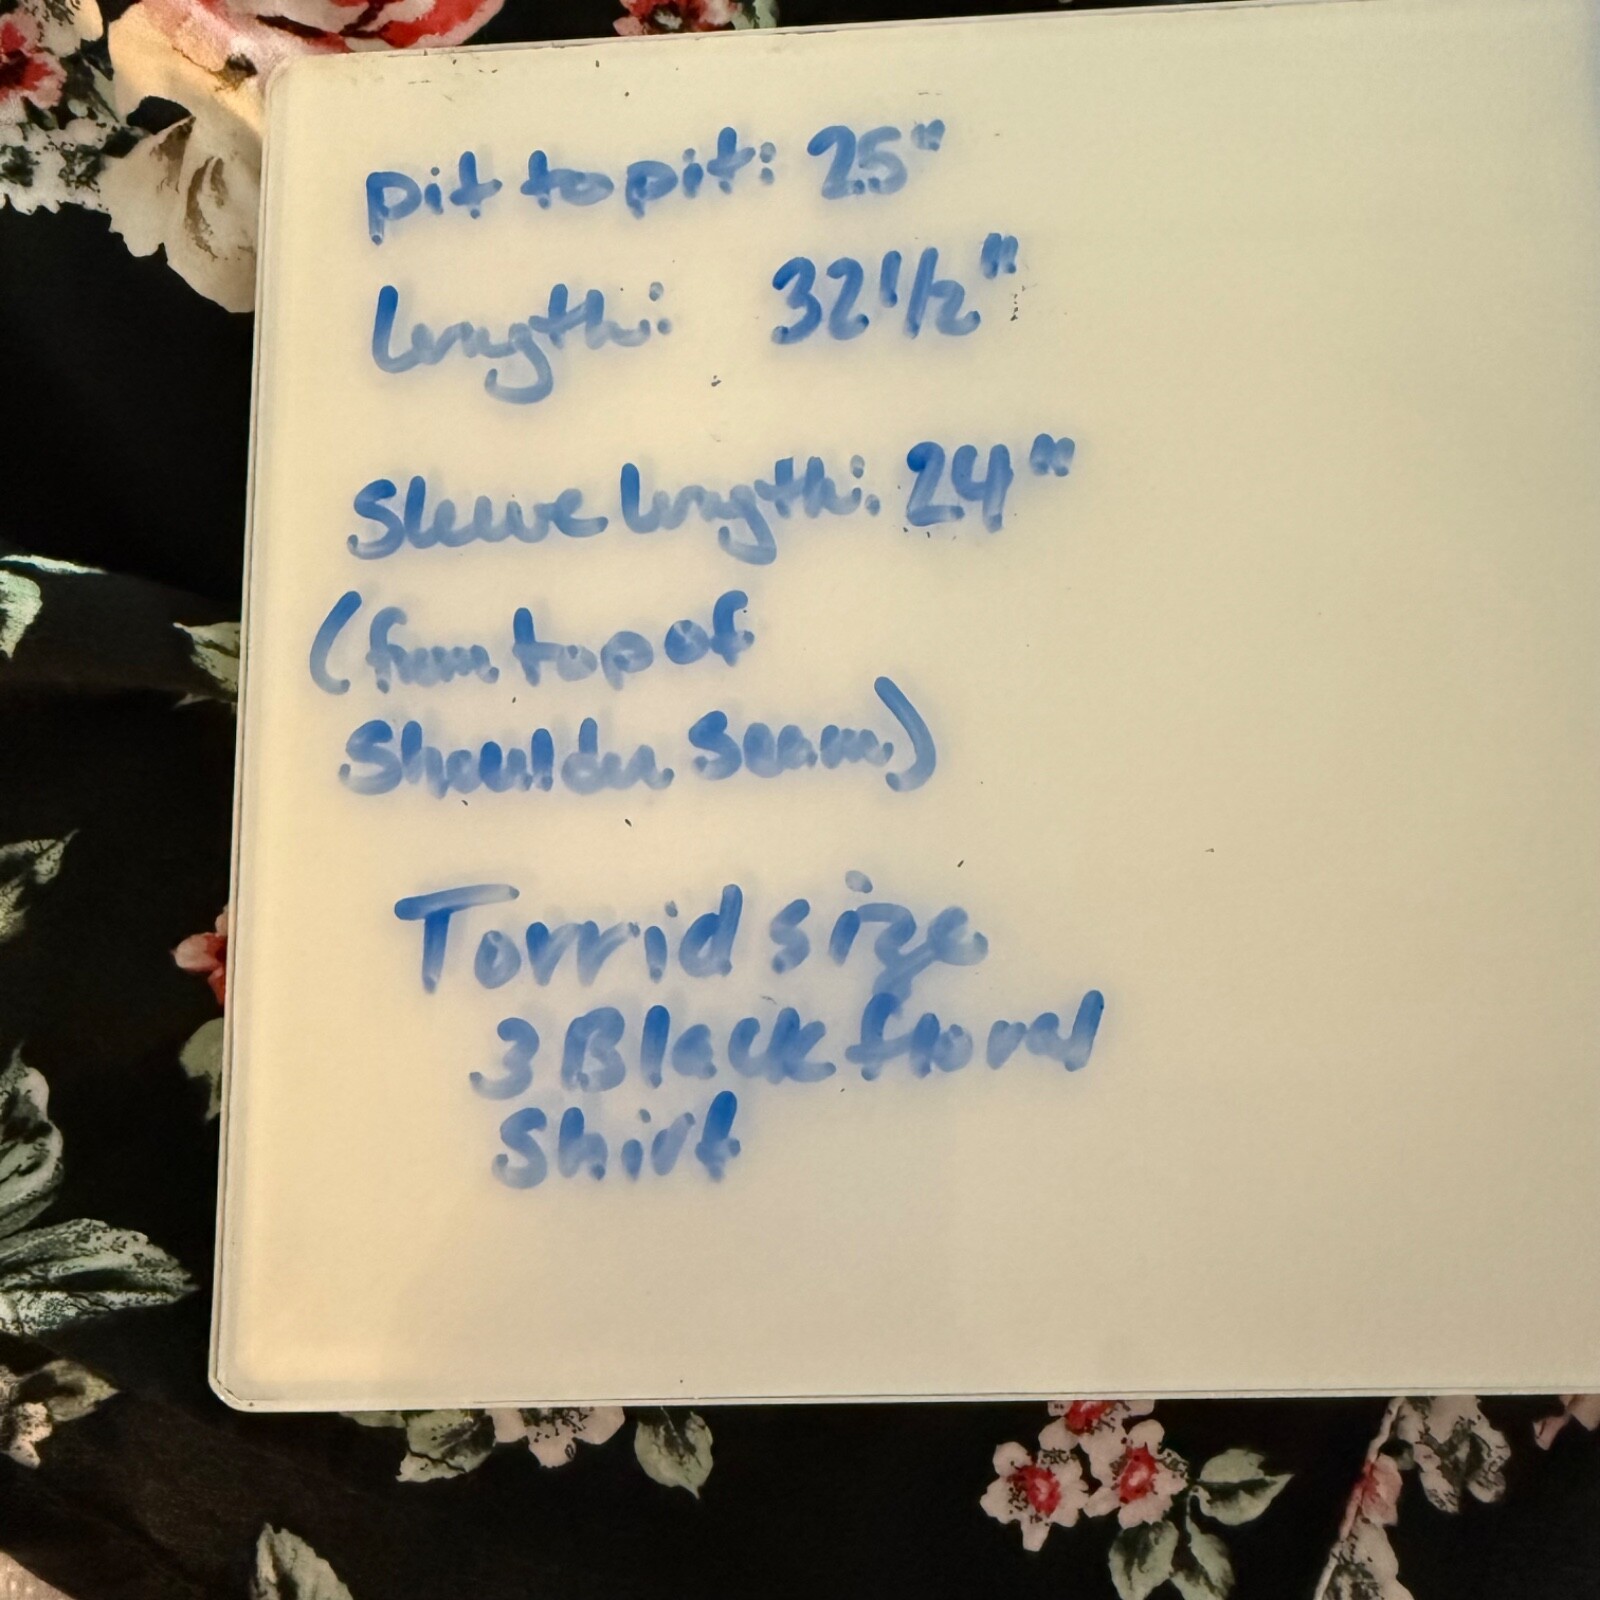 pit to pit: 25"
length: 32 1/2"
Sleeve length: 24"
(from top of
Shoulder Seam)
Torrid size
3 Black floral
Shirt